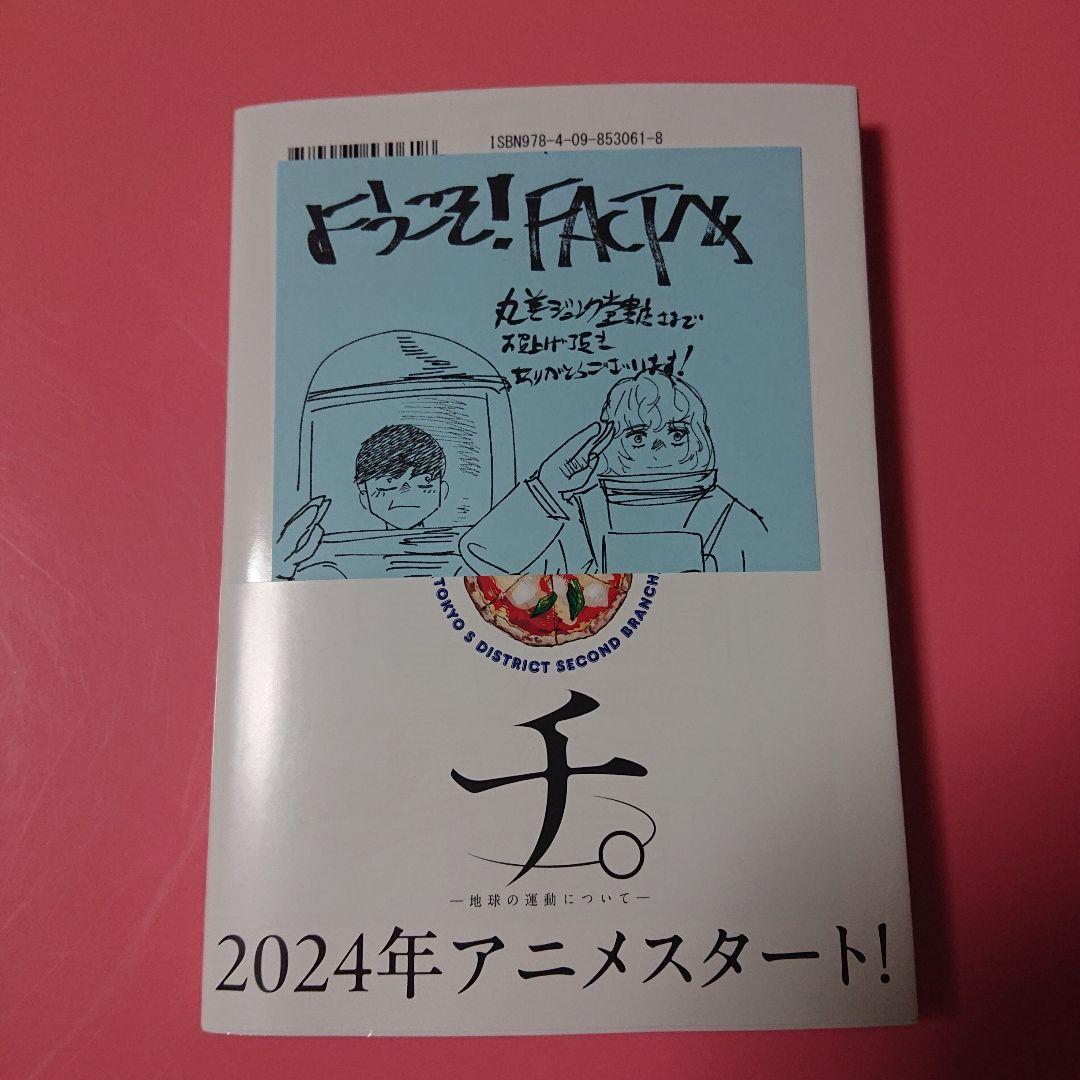 ISBN978-4-09-853061-8
ようこそ!FACTへ
丸善ジュンク堂書店さまで
お買上げ頂き
ありがとうございます!
TOKYO S DISTRICT SECOND BRANCH
チ。
―地球の運動について―
2024年アニメスタート!